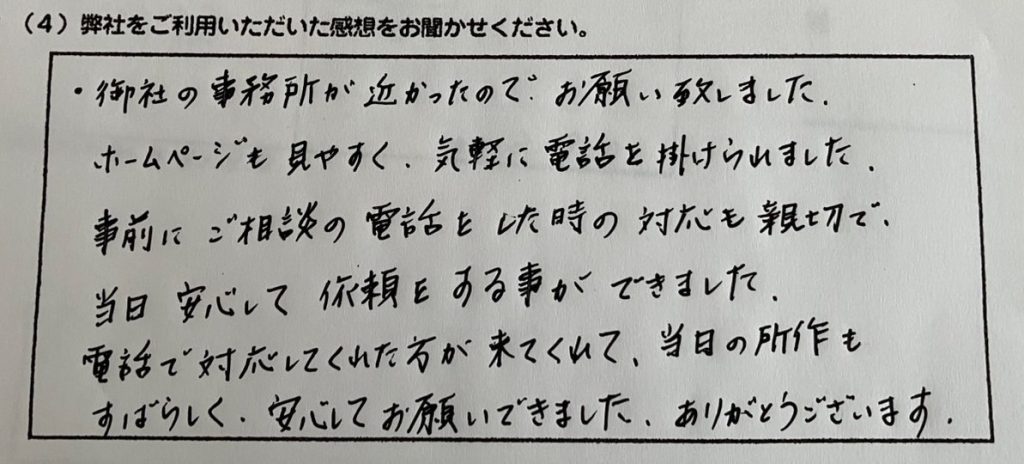 （4）弊社をご利用いただいた感想をお聞かせください。
・御社の事務所が近かったので、お願い致しました。
ホームページも見やすく、気軽に電話を掛けられました。
事前にご相談の電話をした時の対応も親切で、
当日安心して依頼をする事ができました。
電話で対応してくれた方が来てくれて、当日の所作も
すばらしく、安心してお願いできました。ありがとうございます。